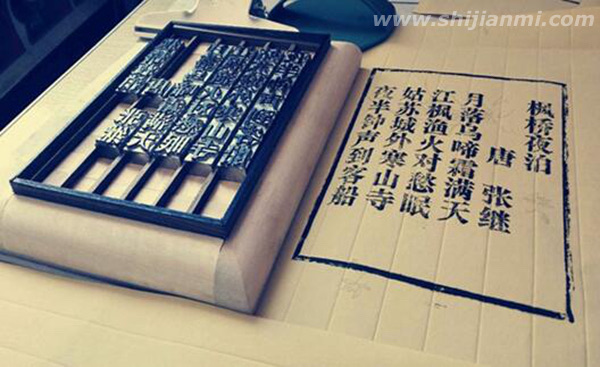 www.shijianmi.com
枫桥夜泊
唐 张继
月落乌啼霜满天
江枫渔火对愁眠
姑苏城外寒山寺
夜半钟声到客船